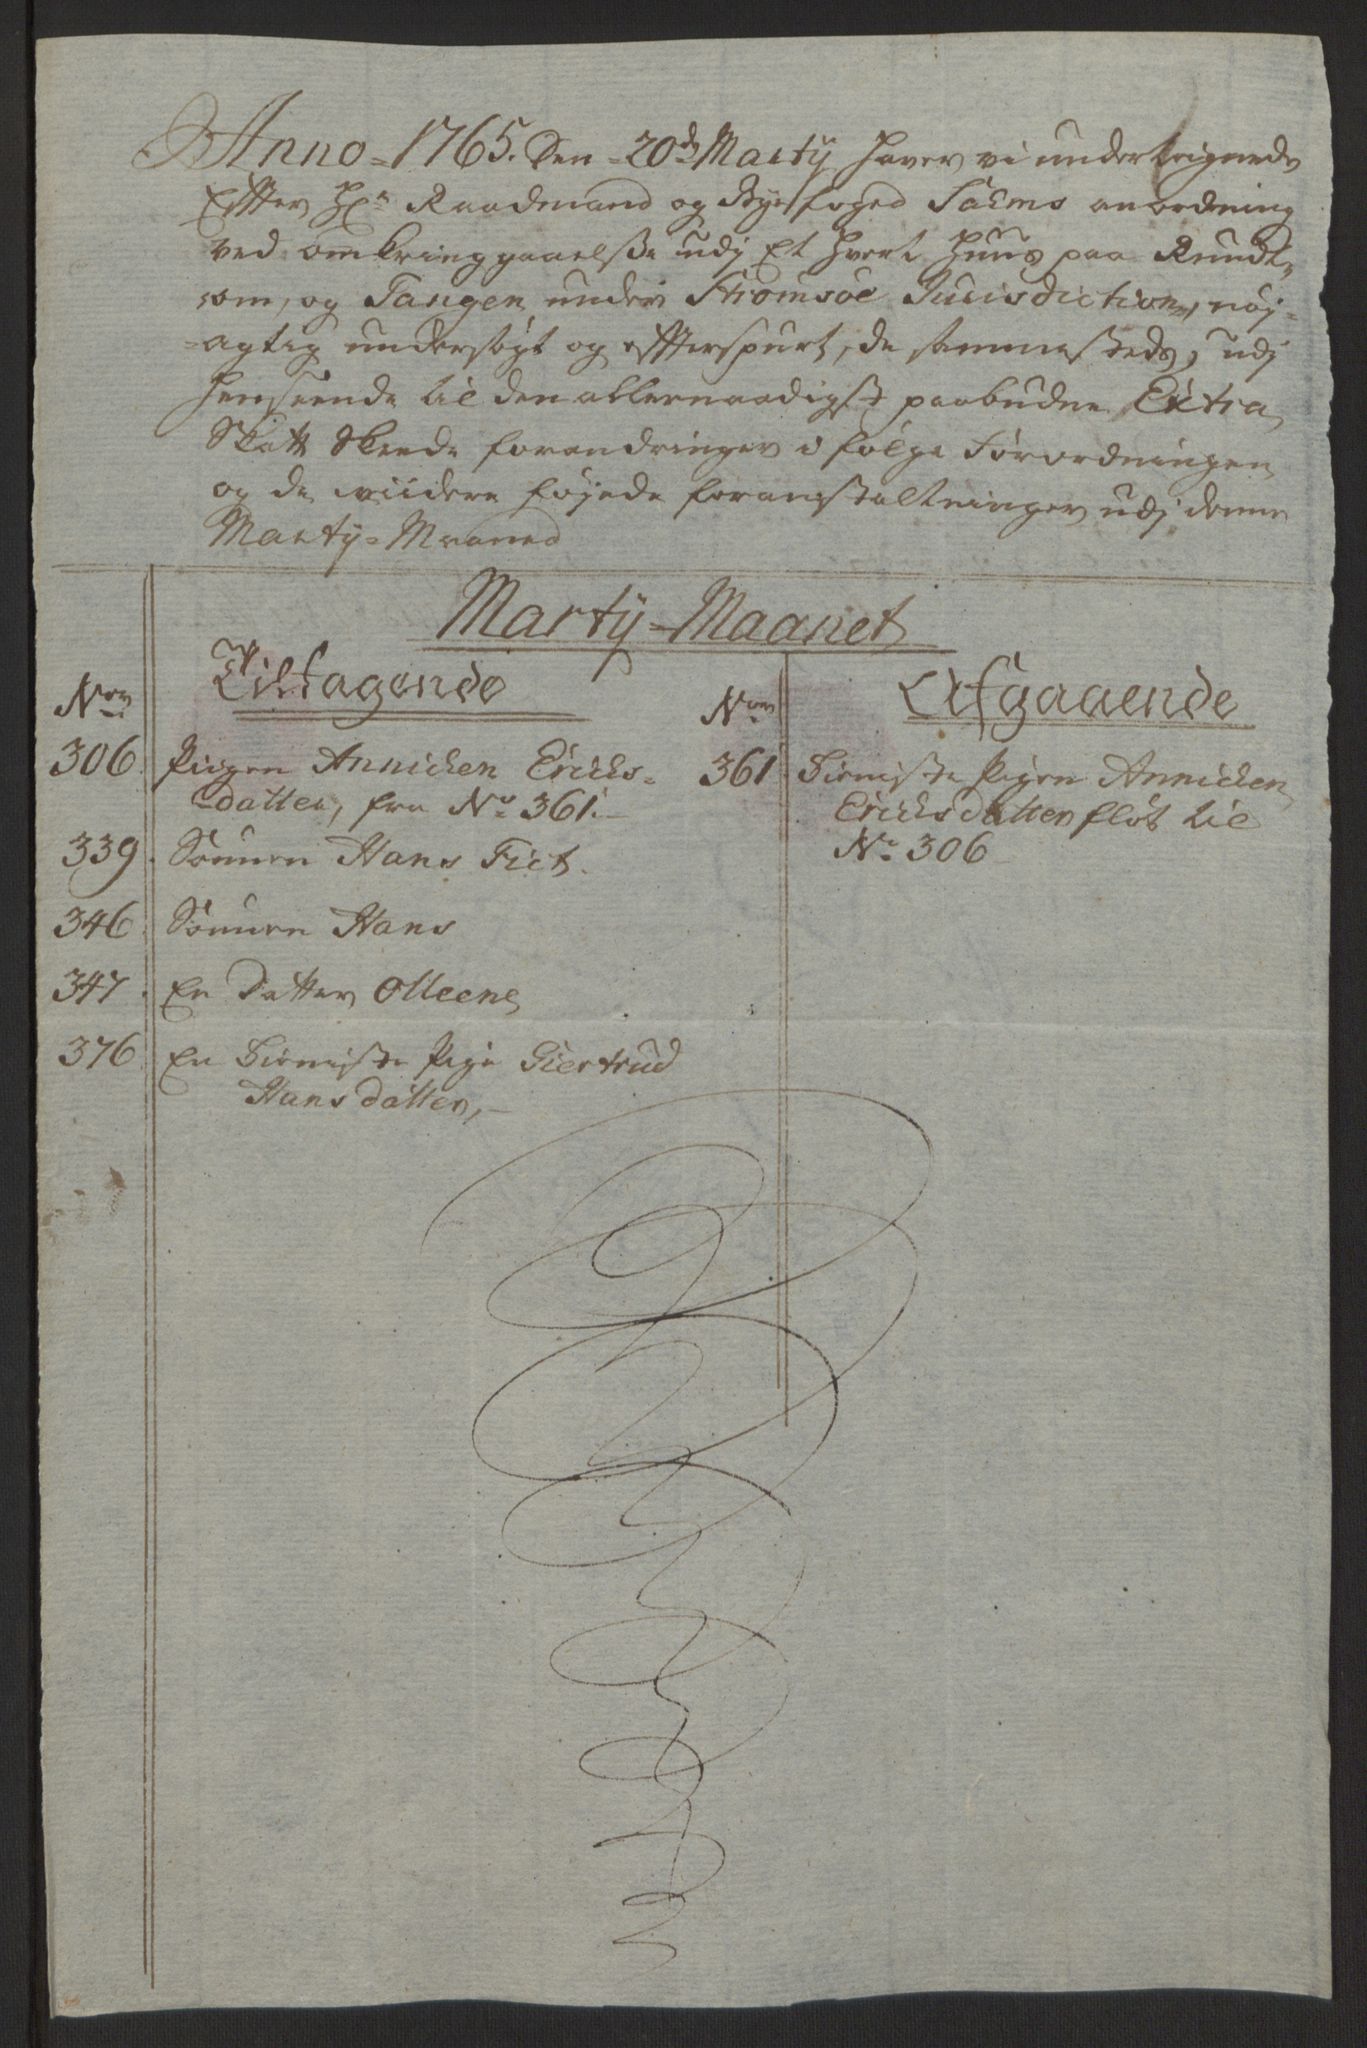 Anno = 1765. Den = 20de Marty haver vi undertegnede
Effter Hr Raadmand og Byefoged Salms anordning
ved omkringgaaelsse udj Et hvert Huus paa Rundt=
om, og Tangen under Strømsøe Jurisdiction, nøj=
=agtig undersøgt og effterspurt, de sammesteds, udj
henseende til den allernaadigst paabudne Extra
Skatt Skeede forandringer i følge Forordningen
og de viidere føyede foranstaltninger udj denne
Marty = Maaned
Marty = Maanet
Nor Tiltagende Nor Afgaaende
306. Piigen Annichen Erichs= 361 Tieniste Pigen Annichen
datter, fra No 361. Erichsdatter fløt til
No 306
339. Sønnen Hans Fict.
346. Sønnen Hans
347. En Datter Olleene
376. En Tieniste Pige Giertrud
Hansdatter,